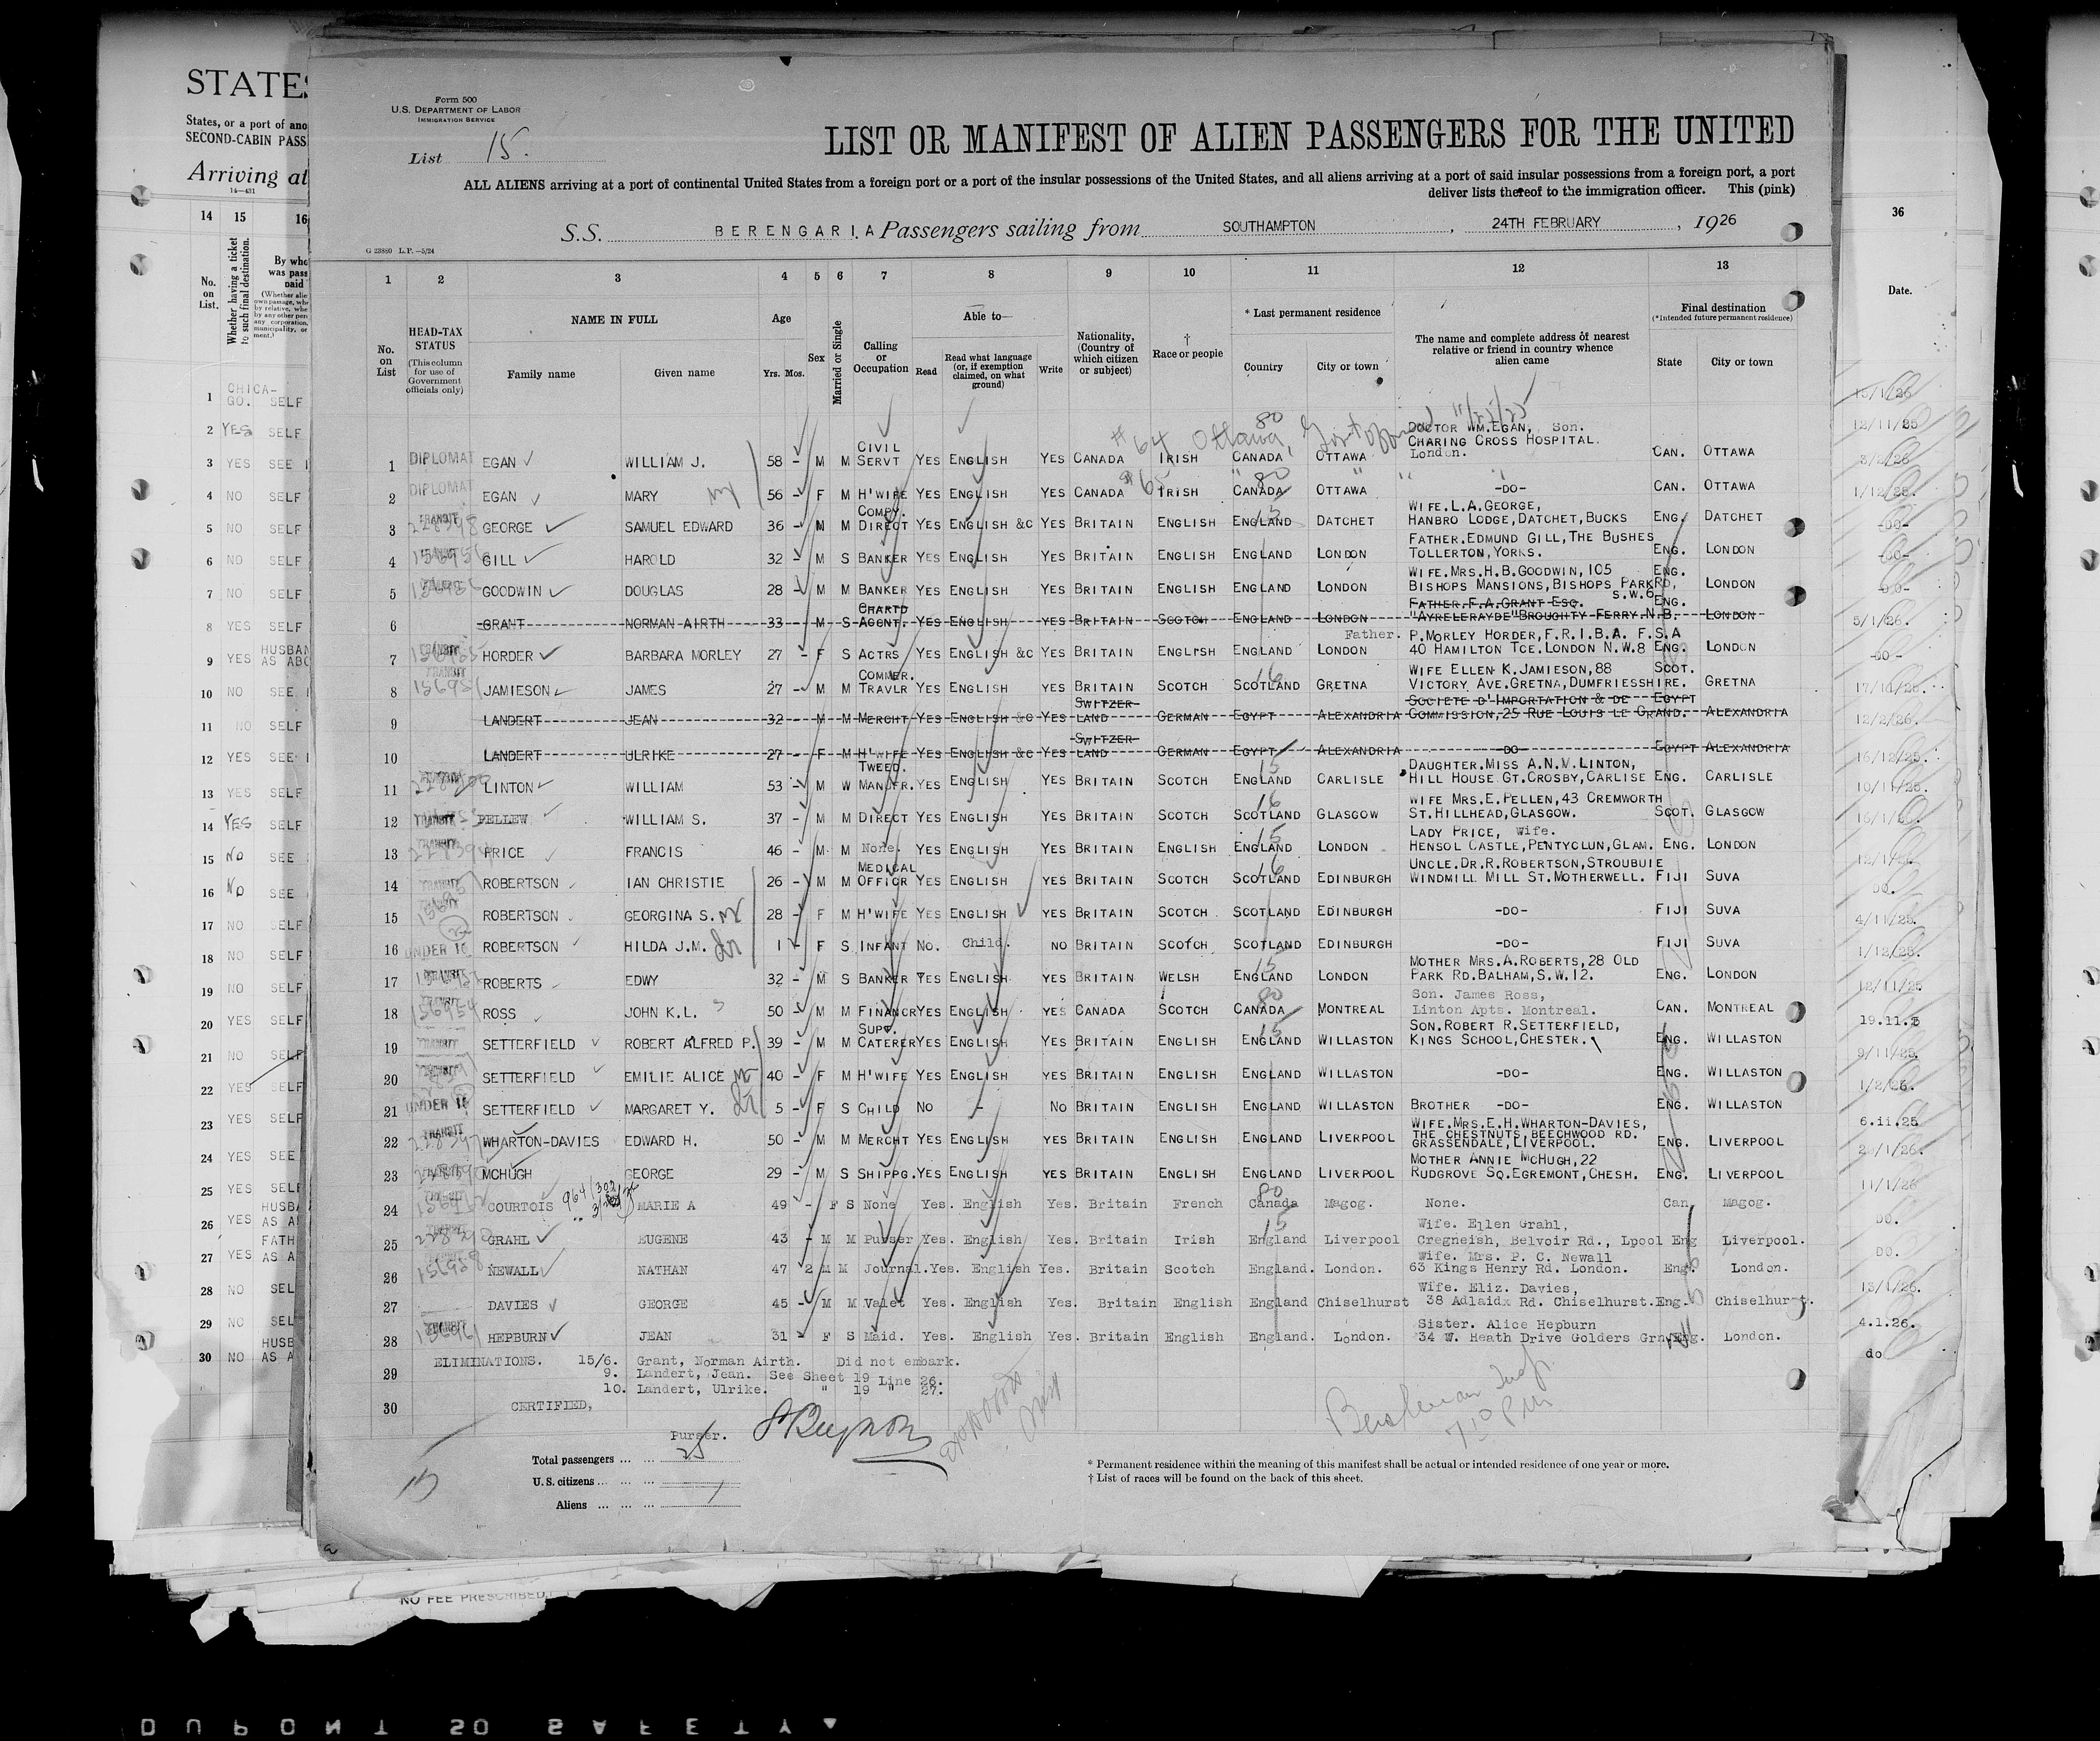 STATES
States, or a port of ano
SECOND-CABIN PASS
Arriving at
14—431
14 15 16
No. on List.
Whether having a ticket to such final destination.
By who
was pass
paid
1 CHICA-GO. SELF
2 YES SELF
3 YES SEE
4 NO SELF
5 NO SELF
6 NO SELF
7 NO SELF
8 YES SELF
9 YES HUSBAN AS ABO
10 NO SEE
11 NO SELF
12 YES SEE
13 YES SELF
14 YES SELF
15 NO SEE
16 NO SEE
17 NO SELF
18 NO SELF
19 NO SELF
20 YES SELF
21 NO SELF
22 YES SELF
23 YES SELF
24 YES SEE
25 YES SELF
26 YES HUSBA AS A
27 YES FATH AS A
28 NO SEL
29 NO SEL
30 NO HUSB AS A
Form 500
U.S. DEPARTMENT OF LABOR
IMMIGRATION SERVICE
List 15.
LIST OR MANIFEST OF ALIEN PASSENGERS FOR THE UNITED
ALL ALIENS arriving at a port of continental United States from a foreign port or a port of the insular possessions of the United States, and all aliens arriving at a port of said insular possessions from a foreign port, a port
deliver lists thereof to the immigration officer. This (pink)
S.S. BERENGARIA Passengers sailing from SOUTHAMPTON, 24TH FEBRUARY, 1926
G 23880 L.P.—5/24
1 2 3 4 5 6 7 8 9 10 11 12 13
No. on List
HEAD-TAX STATUS
(This column for use of Government officials only)
NAME IN FULL
Family name Given name
Age
Yrs. Mos.
Sex
Married or Single
Calling or Occupation
Able to—
Read
Read what language (or, if exemption claimed, on what ground)
Write
Nationality, (Country of which citizen or subject)
† Race or people
* Last permanent residence
Country City or town
The name and complete address of nearest relative or friend in country whence alien came
Final destination
(*Intended future permanent residence)
State City or town
1 DIPLOMAT EGAN WILLIAM J. 58 - M M CIVIL SERVT YES ENGLISH YES CANADA IRISH CANADA OTTAWA DOCTOR WM.EGAN, Son. CHARING CROSS HOSPITAL. London. CAN. OTTAWA
2 DIPLOMAT EGAN MARY 56 - F M H'WIFE YES ENGLISH YES CANADA IRISH CANADA OTTAWA -DO- CAN. OTTAWA
3 TRANSIT GEORGE SAMUEL EDWARD 36 - M M COMPY. DIRECT YES ENGLISH &C YES BRITAIN ENGLISH ENGLAND DATCHET WIFE.L.A.GEORGE, HANBRO LODGE,DATCHET,BUCKS ENG. DATCHET
4 GILL HAROLD 32 - M S BANKER YES ENGLISH YES BRITAIN ENGLISH ENGLAND LONDON FATHER.EDMUND GILL,THE BUSHES TOLLERTON,YORKS. ENG. LONDON
5 GOODWIN DOUGLAS 28 - M M BANKER YES ENGLISH YES BRITAIN ENGLISH ENGLAND LONDON WIFE.MRS.H.B.GOODWIN,105 BISHOPS MANSIONS,BISHOPS PARKRD, S.W.6 ENG. LONDON
6 GRANT NORMAN AIRTH 33 - M S CHARTD AGENT. YES ENGLISH YES BRITAIN SCOTCH ENGLAND LONDON FATHER.F.A.GRANT ESQ. "AYRELERAYDE"BROUGHTY FERRY N.B. ENG. LONDON
7 HORDER BARBARA MORLEY 27 - F S ACTRS YES ENGLISH &C YES BRITAIN ENGLISH ENGLAND LONDON Father. P.MORLEY HORDER,F.R.I.B.A. F.S.A 40 HAMILTON TCE.LONDON N.W.8 ENG. LONDON
8 TRANSIT JAMIESON JAMES 27 - M M COMMER. TRAVLR YES ENGLISH YES BRITAIN SCOTCH SCOTLAND GRETNA WIFE ELLEN K.JAMIESON,88 VICTORY AVE.GRETNA,DUMFRIESSHIRE. SCOT. GRETNA
9 LANDERT JEAN 32 - M M MERCHT YES ENGLISH &C YES SWITZERLAND GERMAN EGYPT ALEXANDRIA SOCIETE D'IMPORTATION & DE COMMISSION,25 RUE LOUIS LE GRAND. EGYPT ALEXANDRIA
10 LANDERT ULRIKE 27 - F M H'WIFE YES ENGLISH &C YES SWITZERLAND GERMAN EGYPT ALEXANDRIA -DO- EGYPT ALEXANDRIA
11 LINTON WILLIAM 53 - M W TWEED. MANUFR. YES ENGLISH YES BRITAIN SCOTCH ENGLAND CARLISLE DAUGHTER.MISS A.N.V.LINTON, HILL HOUSE GT.CROSBY,CARLISE ENG. CARLISLE
12 TRANSIT PELLEW WILLIAM S. 37 - M M DIRECT YES ENGLISH YES BRITAIN SCOTCH SCOTLAND GLASGOW WIFE MRS.E.PELLEN,43 CREMWORTH ST.HILLHEAD,GLASGOW. SCOT. GLASGOW
13 TRANSIT PRICE FRANCIS 46 - M M None. YES ENGLISH YES BRITAIN ENGLISH ENGLAND LONDON LADY PRICE, Wife. HENSOL CASTLE,PENTYCLUN,GLAM. ENG. LONDON
14 TRANSIT ROBERTSON IAN CHRISTIE 26 - M M MEDICAL OFFICR YES ENGLISH YES BRITAIN SCOTCH SCOTLAND EDINBURGH UNCLE.DR.R.ROBERTSON,STROUBUIE WINDMILL MILL ST.MOTHERWELL. FIJI SUVA
15 ROBERTSON GEORGINA S. 28 - F M H'WIFE YES ENGLISH YES BRITAIN SCOTCH SCOTLAND EDINBURGH -DO- FIJI SUVA
16 UNDER 16 ROBERTSON HILDA J.M. 1 - F S INFANT NO. Child. NO BRITAIN SCOTCH SCOTLAND EDINBURGH -DO- FIJI SUVA
17 TRANSIT ROBERTS EDWY 32 - M S BANKER YES ENGLISH YES BRITAIN WELSH ENGLAND LONDON MOTHER MRS.A.ROBERTS,28 OLD PARK RD.BALHAM,S.W.12. ENG. LONDON
18 ROSS JOHN K.L. 50 - M M FINANCR YES ENGLISH YES CANADA SCOTCH CANADA MONTREAL Son. James Ross, Linton Apts. Montreal. CAN. MONTREAL
19 TRANSIT SETTERFIELD ROBERT ALFRED P. 39 - M M SUPT. CATERER YES ENGLISH YES BRITAIN ENGLISH ENGLAND WILLASTON SON.ROBERT R.SETTERFIELD, KINGS SCHOOL,CHESTER. ENG. WILLASTON
20 SETTERFIELD EMILIE ALICE 40 - F M H'WIFE YES ENGLISH YES BRITAIN ENGLISH ENGLAND WILLASTON -DO- ENG. WILLASTON
21 UNDER 16 SETTERFIELD MARGARET Y. 5 - F S CHILD NO - NO BRITAIN ENGLISH ENGLAND WILLASTON BROTHER -DO- ENG. WILLASTON
22 TRANSIT WHARTON-DAVIES EDWARD H. 50 - M M MERCHT YES ENGLISH YES BRITAIN ENGLISH ENGLAND LIVERPOOL WIFE.MRS.E.H.WHARTON-DAVIES, THE CHESTNUTS,BEECHWOOD RD. GRASSENDALE,LIVERPOOL. ENG. LIVERPOOL
23 MCHUGH GEORGE 29 - M S SHIPPG. YES ENGLISH YES BRITAIN ENGLISH ENGLAND LIVERPOOL MOTHER ANNIE MCHUGH,22 RUDGROVE SQ.EGREMONT,CHESH. ENG. LIVERPOOL
24 COURTOIS MARIE A 49 - F S None Yes. English Yes. Britain French Canada Magog. None. Can. Magog.
25 GRAHL EUGENE 43 - M M Purser Yes. English Yes. Britain Irish England Liverpool Wife. Ellen Grahl, Cregneish, Belvoir Rd., Lpool Eng Liverpool.
26 NEWALL NATHAN 47 2 M M Journal. Yes. English Yes. Britain Scotch England. London. Wife. Mrs. P. C. Newall 63 Kings Henry Rd. London. Eng. London.
27 DAVIES GEORGE 45 - M M Valet Yes. English Yes. Britain English England Chiselhurst Wife. Eliz. Davies, 38 Adlaidx Rd. Chiselhurst. Eng. Chiselhurst.
28 HEPBURN JEAN 31 - F S Maid. Yes. English Yes. Britain English England. London. Sister. Alice Hepburn 34 W. Heath Drive Golders Grn Eng. London.
29 ELIMINATIONS. 15/6. Grant, Norman Airth. Did not embark.
9. Landert, Jean. See Sheet 19 Line 26.
10. Landert, Ulrike. " 19 " 27.
30 CERTIFIED,
Purser.
Total passengers ... ... 25
U.S. citizens ... ...
Aliens ... ... ...
* Permanent residence within the meaning of this manifest shall be actual or intended residence of one year or more.
† List of races will be found on the back of this sheet.
7 10 PM
15
36
Date.
15/1/26
12/11/25
3/2/26
1/12/25.
-DO-
-DO-
-DO-
5/1/26.
-DO-
17/11/25.
12/2/26.
16/12/25.
10/11/25.
16/1/26.
12/1/26
DO.
4/11/25.
1/12/25.
12/11/25
19.11.25
9/11/25.
1/2/26.
6.11.25
11/1/26
DO.
DO.
4.1.26.
do
NO FEE PRESCRIBED
DUPONT SO SAFETY